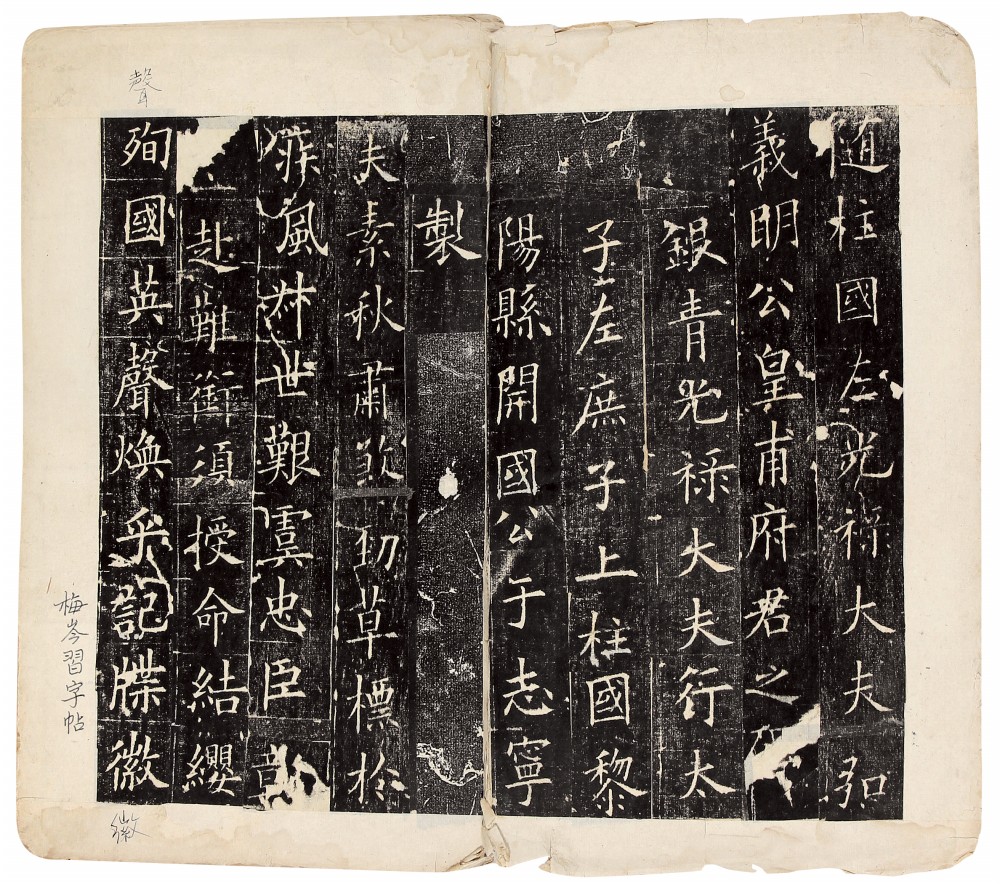 随柱國左光禄大夫弘
義明公皇甫府君之
銀青光禄大夫行太
子左庶子上柱國黎
陽縣開國公于志寧
製
夫素秋肅煞勁草標扵
疾風叔世艱虞忠臣
赴難銜須授命結纓
殉國英聲煥乎記牒徽
聲
徽
梅岑習字帖